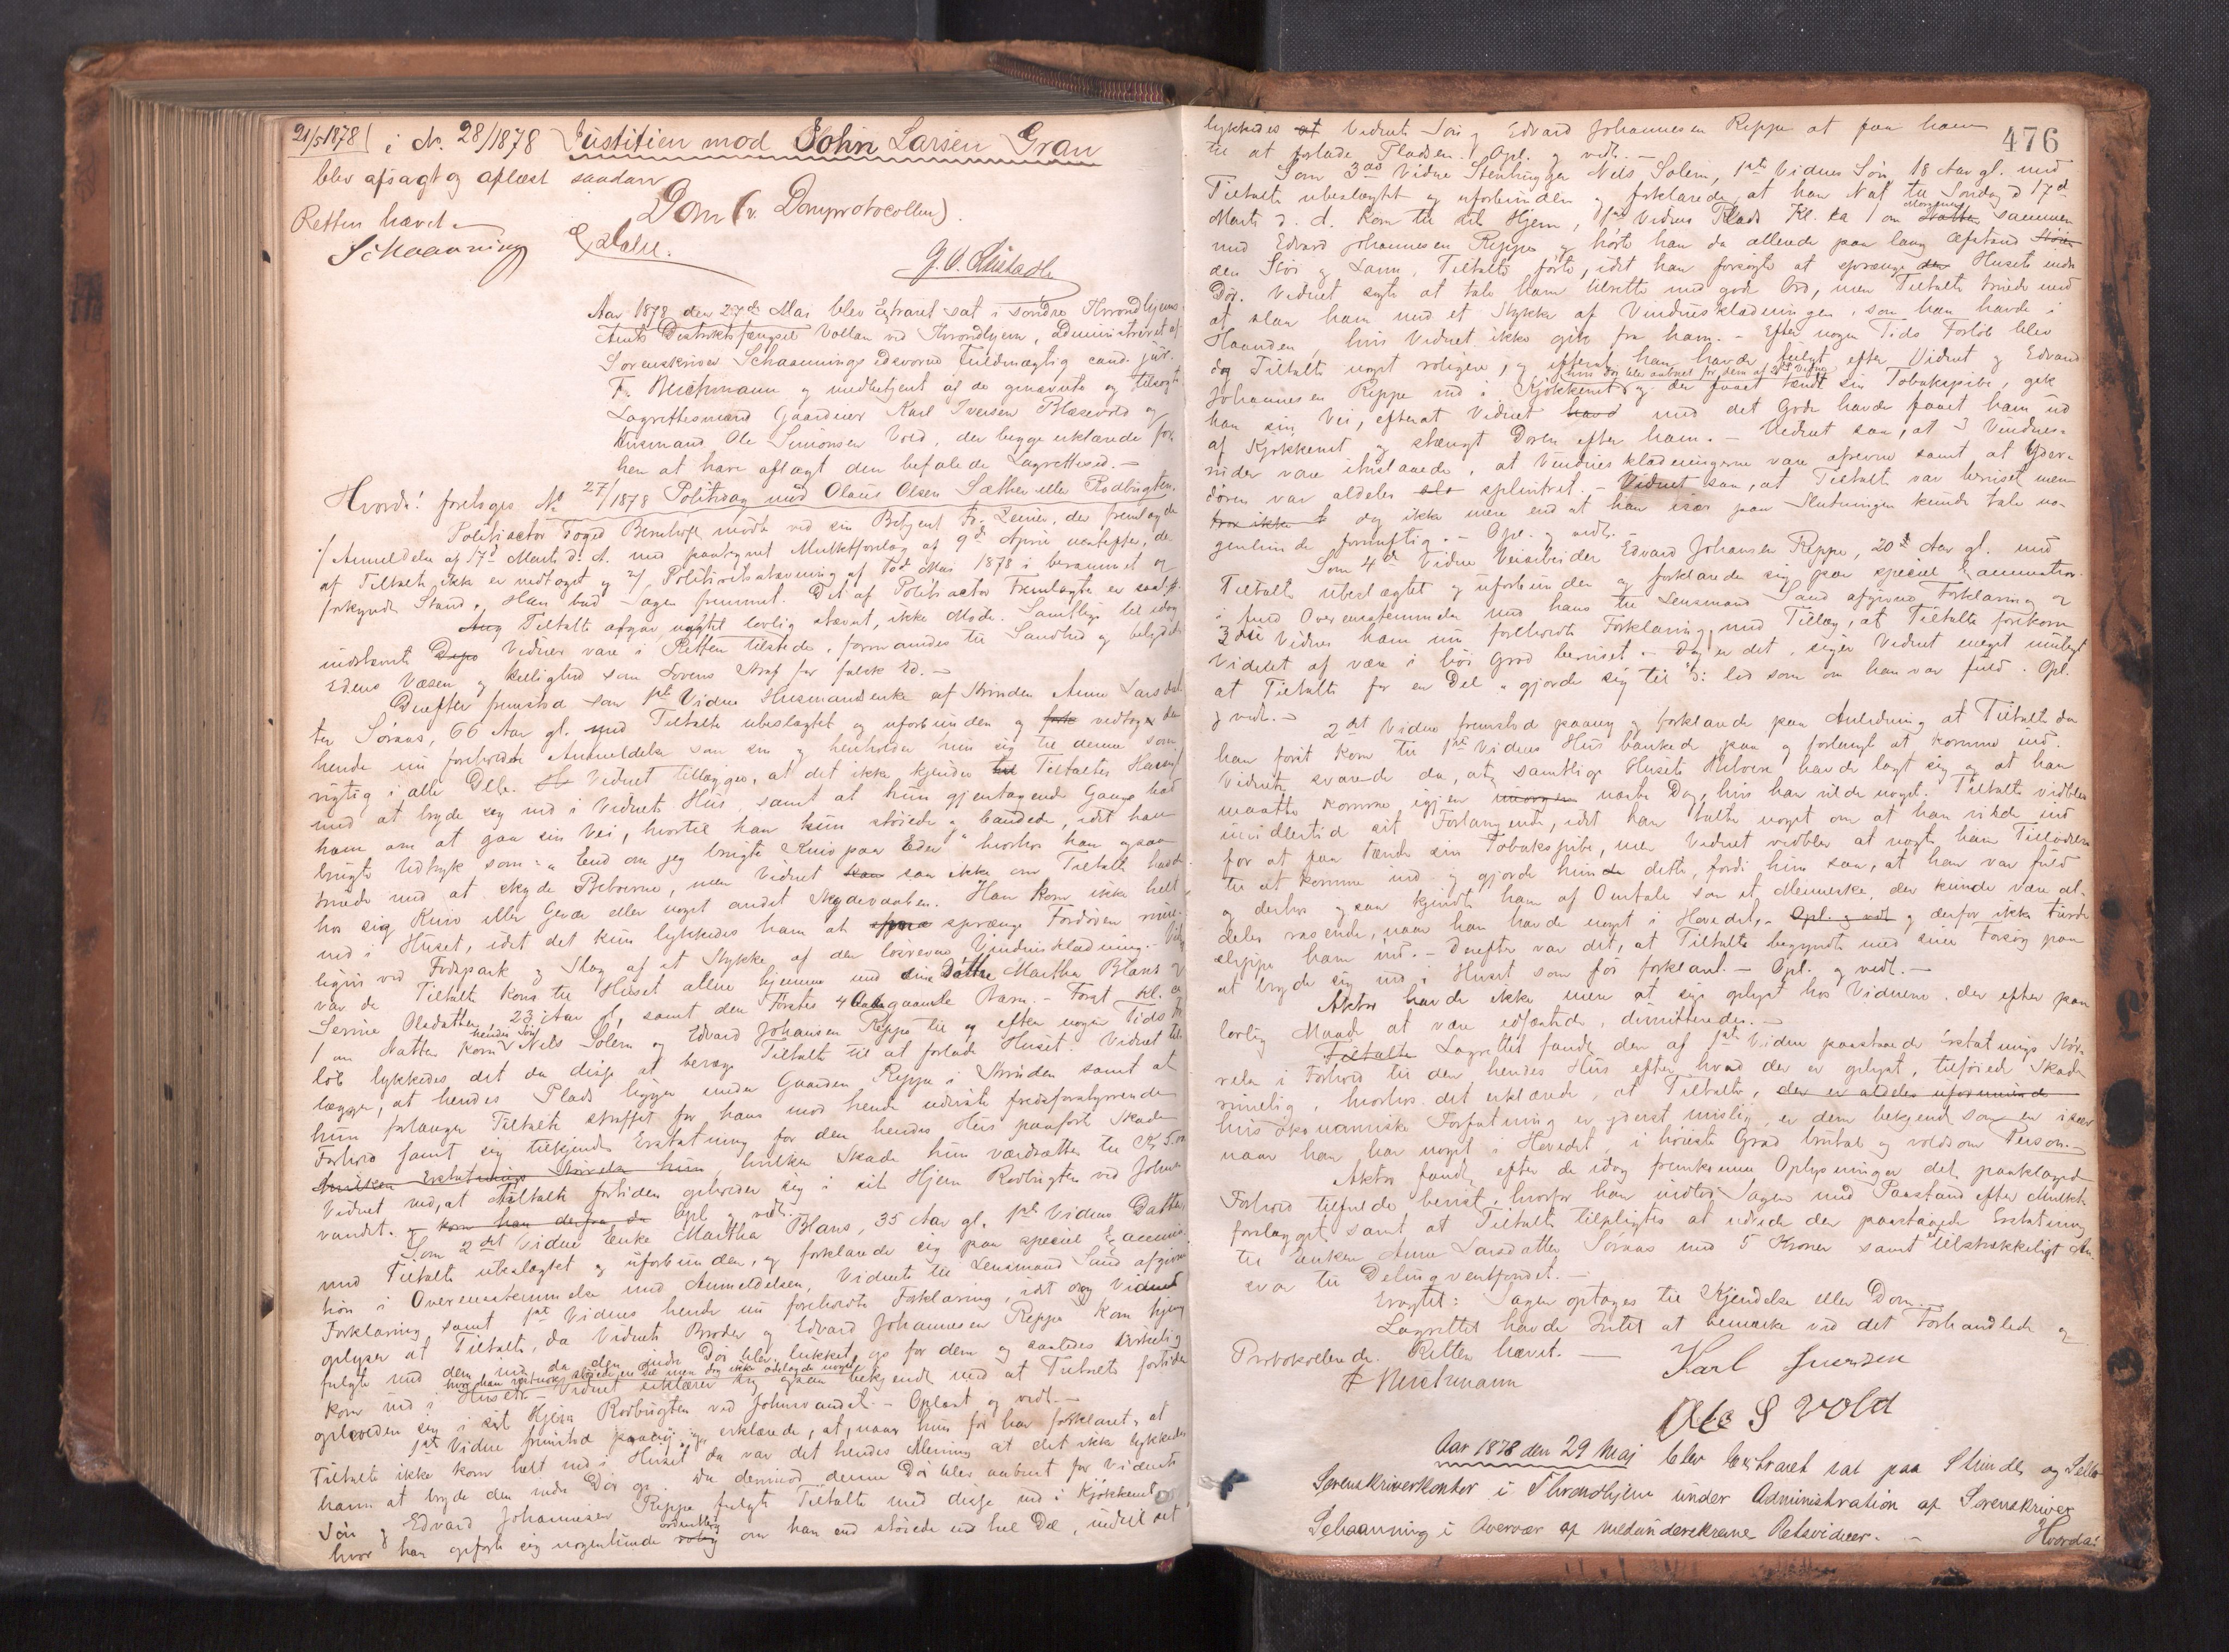 21/5 1878 i No. 28/1878 Justitien mod John Larsen Gran
blev afsagt og oplæst saadan
Dom (v. Domprotocollen).
Retten hævet.
Schaanning
Aar 1878 den 27de Mai blev Extraret sat i søndre Throndhjems
Amts Distriktsfængsel Vollan ved Throndhjem, Administreret af
Sorenskriver Schaannings edsvorne Fuldmægtig cand. jur.
F. Neuchmann og medbetjent af de opnævnte og tilsagte
Lagrettesmænd Gaardmer Karl Iversen Blæsevold og
Husmand Ole Simonsen Vold, der begge erklærede før
hen at have aflagt den befalede Lagrettesed.
Hvorda! foretoges No 27/1878 Politisag mod Olaus Olsen Sæther eller Rødbugten.
Politiactor Foged Bernhoft mødte ved sin Betjent Fr. Zeiner, der fremlagde
1/ Anmeldelse af 17de Marts d. A. med paategnet Mulktforelæg af 9de April næstefter, der
af Tiltalte ikke er vedtaget og 2/ Politiretsstævning af 10de Mai 1878 i berammet og
forkyndt Stand. Han bad Sagen fremmet. Det af Politiactor Fremlagte er saal.
Tiltalte afgav, uagtet lovlig stævnt, ikke Møde. Samtlige til idag
indstævnte Vidner vare i Retten tilstede, formanedes til Sandhed og betydedes
Edens Væsen og Hellighed som Lovens Straf for falsk Ed.
Derefter fremstod som 1ste Vidne Husmandsenke af Strinden Anne Larsdat-
ter Søraas, 66 Aar gl. med Tiltalte ubeslægtet og uforbunden og vedtog den
hende nu foreholdte Anmeldelse som sin og henholder hun sig til denne som
rigtig i alle Dele. Vidnet tillægger, at det ikke kjender Tiltaltes Hensigt
med at bryde sig ind i Vidnets Hus, samt at hun gjentagende Gange bad
ham om at gaa sin Vei, hvortil han kun støiede og bandede, idet han
brugte Udtryk som: "End om jeg brugte Kniv paa Eder" hvorhos han ogsaa
truede med at skyde Beboerne, men Vidnet saa ikke om Tiltalte havde
hos sig Kniv eller Gevær eller noget andet Skydevaaben. Han kom ikke helt
ind i Huset, idet det kun lykkedes ham at sprænge Fordøren rime-
ligvis ved Fodspark og Slag af et Stykke af den løsrevne Vinduesklædning. Vidnet
var da Tiltalte kom til Huset alene hjemme med sine Døttre Martha Blans og
Serine Olsdatter 23 Aar gl., samt den Førstes 4 Børn. Først Kl. ca
1 om Natten kom hendes Søn Nils Solem og Edvard Johansen Reppe til og efter nogen Tids For-
løb lykkedes det da disse at bevæge Tiltalte til at forlade Huset. Vidnet til-
lægger, at hendes Plads ligger under Gaarden Reppe i Strinden samt at
hun forlanger Tiltalte straffet for hans mod hende udviste fredsforstyrrende
Forhold samt sig tilkjendt Erstatning for den hendes Hus paaførte Skade
hvilken Skade hun værdsætter til Kr 5.00
Vidnet ved, at Tiltalte fortiden opholder sig i sit Hjem Rødbugten ved Johns-
vandet. Opl. og vedt.
Som 2det Vidne Enke Martha Blans, 35 Aar gl. 1ste Vidnes Datter,
med Tiltalte ubeslægtet og uforbunden, og forklarede sig paa speciel Examina-
tion i Overensstemmelse med Anmeldelsen, Vidnets til Lensmand Sand afgivne
Forklaring samt 1ste Vidnes hende nu foreholdte Forklaring, idet dog Vidnet
oplyser at Tiltalte, da Vidnets Broder og Edvard Johannesen Reppe kom hjem
fulgte med dem ind, da den indre Dør blev lukket op for dem og saaledes virkelig
kom ind i Huset, hvor han støiede en Del men dog ikke ødelagde noget. Vidnet erklærer sig ogsaa bekjendt med at Tiltalte fortiden
opholder sig i sit Hjem Rødbugten ved Johnsvandet. Oplæst og vedt.
1ste Vidne fremstod paany og erklærede, at, naar hun før har forklaret, at
Tiltalte ikke kom helt ind i Huset da var det hendes Mening at det ikke lykkedes
ham at bryde den indre Dør op. Da derimod denne Dør blev aabnet for Vidnets
Søn og Edvard Johannesen Reppe fulgte Tiltalte med disse ind i Kjøkkenet
hvor han opførte sig nogenlunde ordentlig om han end støiede en hel Del, indtil det
476
lykkedes Vidnets Søn og Edvard Johannesen Reppe at faa ham
til at forlade Pladsen. Opl. og vedt.
Som 3die Vidne Stenhugger Nils Solem, 1ste Vidnes Søn, 18 Aar gl. med
Tiltalte ubeslægtet og uforbunden og forklarede, at han Nat til Søndag d 17de
Marts d. A. kom til sit Hjem, 1ste Vidnes Plads Kl. ca 1 om Morgenen sammen
med Edvard Johannesen Reppe og hørte han da allerede paa lang Afstand
den Støi og Larm, Tiltalte førte, idet han forsøgte at sprænge Husets indre
Dør. Vidnet søgte at tale ham tilrette med gode Ord, men Tiltalte truede med
at slaa ham med et Stykke af Vinduesklædningen, som han havde i
Haanden, hvis Vidnet ikke gik fra ham. - Efter nogen Tids Forløb blev
dog Tiltalte noget roligere, og efterat han havde fulgt efter Vidnet og Edvard
Johannesen Reppe ind i Kjøkkenet, hvis Dør blev aabnet for dem af 2det Vidne, og der faaet tændt sin Tobakspibe, gik
han sin Vei, efterat Vidnet med det Gode havde faaet ham ud
af Kjøkkenet og stængt Døren efter ham. - Vidnet saa, at 3 Vindues-
ruder vare itustaaede, at Vinduesklædningerne vare afrevne samt, at Yder-
døren var aldeles splintret. - Vidnet saa, at Tiltalte var beruset men
dog ikke mere end at han især paa Slutningen kunde tale no-
genlunde fornuftig. - Opl. og vedt.
Som 4de Vidne Veiarbeider Edvard Johansen Reppe, 20 Aar gl. med
Tiltalte ubeslægtet og uforbunden og forklarede sig paa speciel Examination
i fuld Overensstemmelse med hans til Lensmand Sand afgivne Forklaring og
3die Vidnes ham nu foreholdte Forklaring, med Tillæg, at Tiltalte forekom
Vidnet at være i høi Grad beruset. - Dog er det, siger Vidnet meget muligt
at Tiltalte for en Del "gjorde sig til" ɔ: lod som om han var fuld. Opl.
og vedt.
2det Vidne fremstod paany og forklarede paa Anledning at Tiltalte da
han først kom til 1ste Vidnes Hus bankede paa og forlangte at komme ind.
Vidnet svarede da, at samtlige Husets Beboere havde lagt sig og at han
maatte komme igjen næste Dag, hvis han vilde noget. Tiltalte vedblev
imidlertid sit Forlangende, idet han talte noget om at han vilde ind
for at faa tænde sin Tobakspibe, men Vidnet vedblev at nægte ham Tilladelse
til at komme ind og gjorde hun dette, fordi hun saa, at han var fuld
og derhos ogsaa kjendte ham af Omtale som et Menneske, der kunde være al-
deles rasende, naar han havde noget i Hovedet, og derfor ikke turde
slippe ham ind. - Derefter var det, at Tiltalte begyndte med sine Forsøg paa
at bryde sig ind i Huset som før forklaret. - Opl. og vedt.
Aktor havde ikke mere at søge oplyst hos Vidnerne, der efter paa
lovlig Maade at være edfæstede, dimitteredes.
Lagrettet fandt den af 1ste Vidne paastaaede Erstatnings Stør-
relse i Forhold til den hendes Hus efter hvad der er oplyst, tilføiede Skade
rimelig, hvorhos det erklærede, at Tiltalte,
hvis økonomiske Forfatning er yderst mislig, er dem bekjendt som en især
naar han har noget i Hovedet, i høieste Grad brutal og voldsom Person.
Aktor fandt efter de idag fremkomne Oplysninger det paaklagede
Forhold tilfulde bevist, hvorfor han indlod Sagen med Paastand efter Mulkt-
forelægget, samt at Tiltalte tilpligtes at udrede den paastaaede Erstatning
til Enken Anne Larsdatter Søraas med 5 Kroner samt et tilstrækkeligt An-
svar til Delinqventfondet.
Eragtet: Sagen optages til Kjendelse eller Dom.
Lagrettet havde Intet at bemærke ved det Forhandlede og
Protokollerede. Retten hævet.
F Neuchmann
Karl Iversen
Ole S Vold
Aar 1878 den 29 Maj blev Extraret sat paa Strindens og Selbu
Sorenskriverkontor i Throndhjem under Administration af Sorenskriver
Schaanning i Overvær af medunderskrevne Retsvidner.
Hvorda!